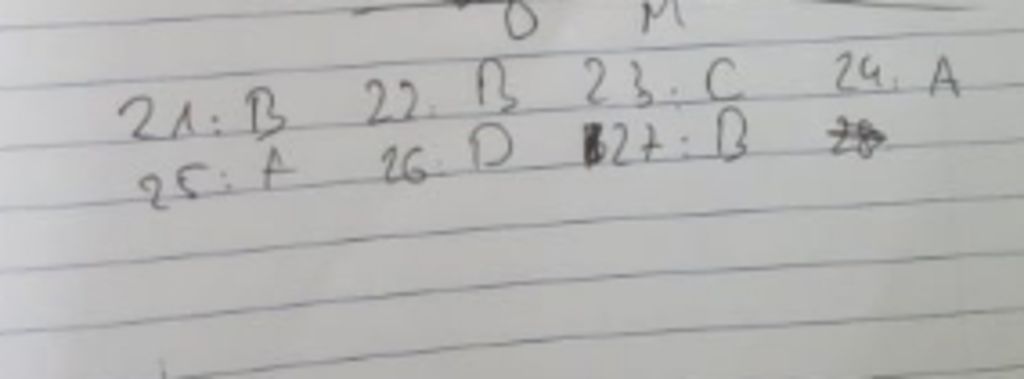 21: B 22. B 23. C 24. A
25: A 26. D 27: B